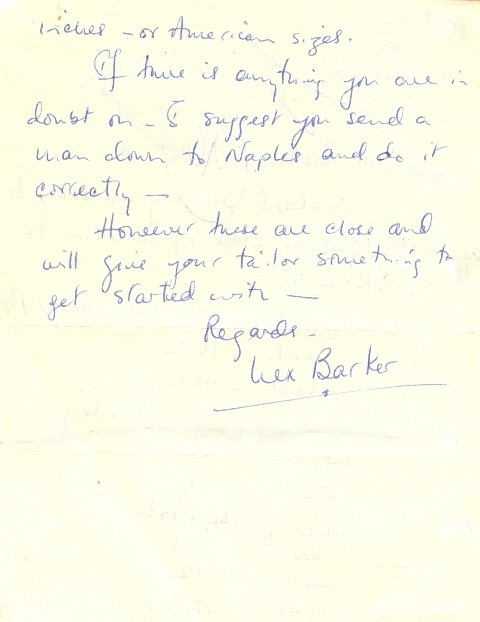 inches - or American sizes.
If there is anything you are in
doubt on - I suggest you send a
man down to Naples and do it
correctly —
However these are close and
will give your tailor something to
get started with —
Regards -
Lex Barker